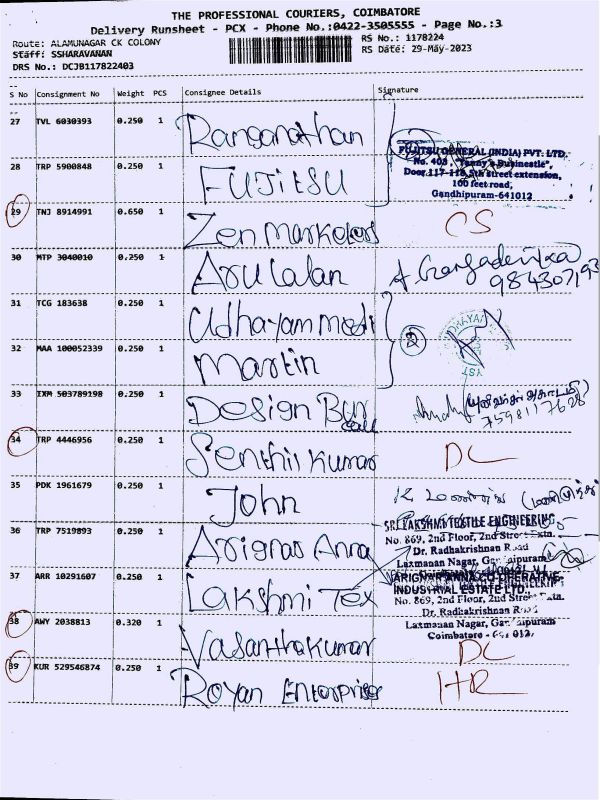 THE PROFESSIONAL COURIERS, COIMBATORE
Delivery Runsheet - PCX - Phone No.:0422-3505555 - Page No.:3
Route: ALAMUNAGAR CK COLONY
RS No.: 1178224
Staff: SSHARAVANAN
RS Date: 29-May-2023
DRS No.: DCJB117822403
S No Consignment No Weight PCS Consignee Details Signature
27 TVL 6030393 0.250 1 Ranganathan
28 TRP 5900848 0.250 1 FUJitSU
FUJITSU GENERAL (INDIA) PVT. LTD.
No. 403, "Tenny's Businestle",
Door 117-118, 5th street extension,
100 feet road,
Gandhipuram-641012
29 TNJ 8914991 0.650 1 Zen Marketers CS
30 MTP 3040010 0.250 1 Arulalan
31 TCG 183638 0.250 1 Udhayam Medi
32 MAA 100052339 0.250 1 Martin
2
33 IXM 503789198 0.250 1 Design Bureau
7598117628
34 TRP 4446956 0.250 1 Senthil Kumar DL
35 PDK 1961679 0.250 1 John
36 TRP 7519893 0.250 1 Arignar Anna
SRI LAKSHMI TEXTILE ENGINEERING
No. 869, 2nd Floor, 2nd Street Extn.
Dr. Radhakrishnan Road
Laxmanan Nagar,
37 ARR 10291607 0.250 1 Lakshmi Tex
ARIGNAR ANNA CO-OPERATIVE
INDUSTRIAL ESTATE LTD.,
No. 869, 2nd Floor, 2nd Street Extn.
Dr. Radhakrishnan Road
Laxmanan Nagar,
Coimbatore - 641 012.
38 AWY 2038813 0.320 1 Vasanthakumar DL
39 KUR 529546874 0.250 1 Royan Enterprises HR